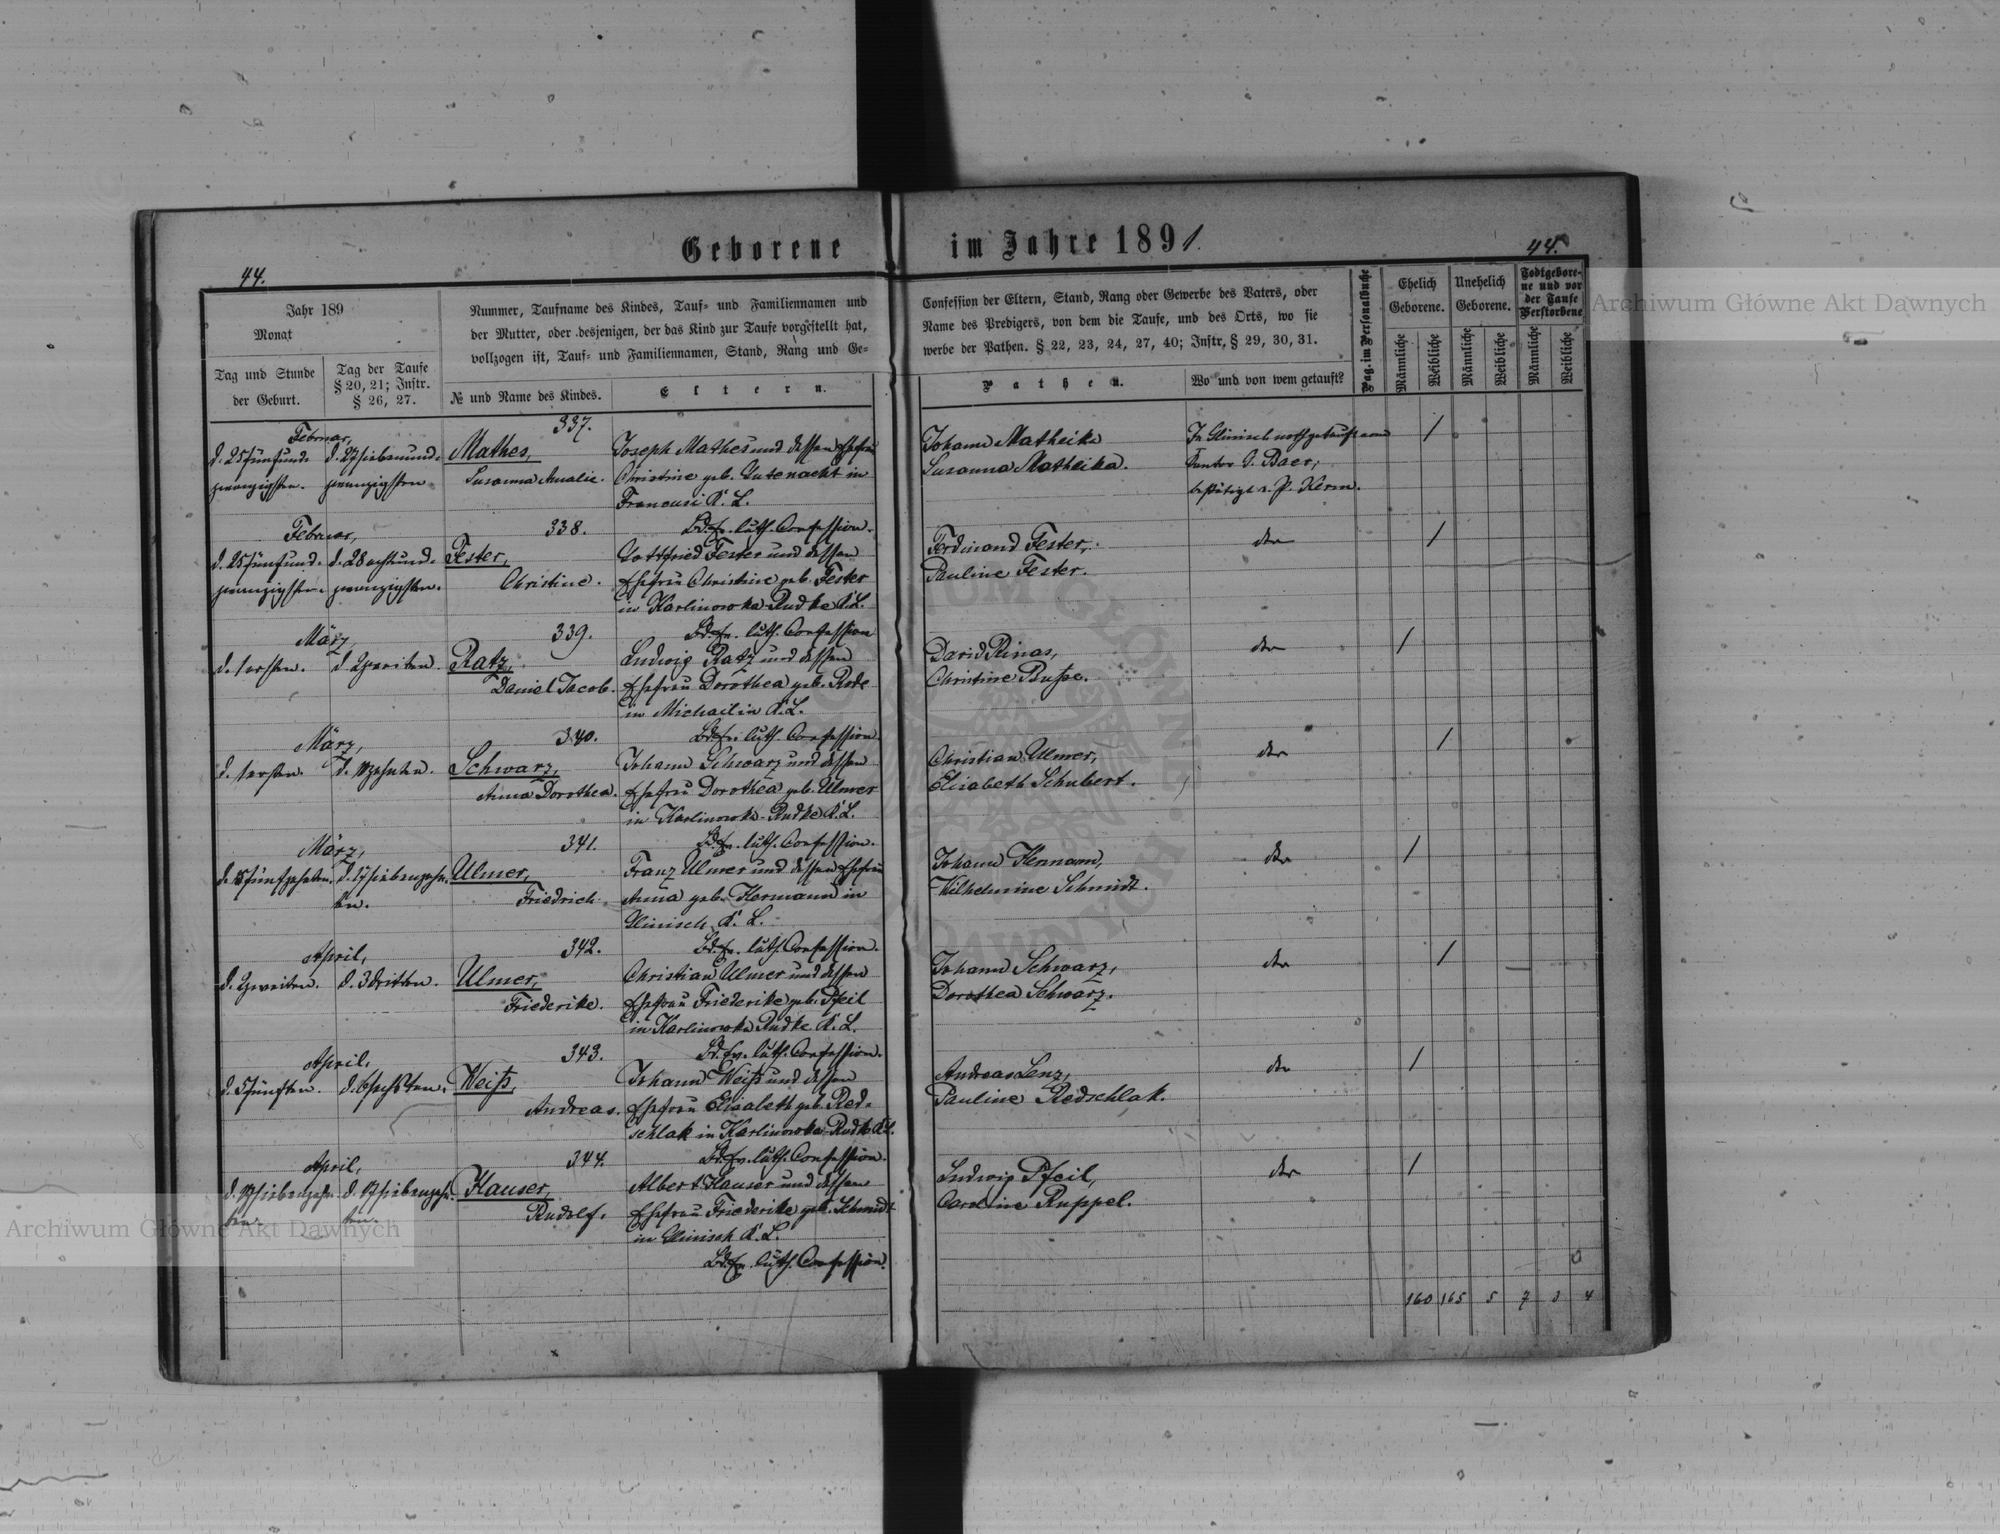 Geborene im Jahre 1891.
44. 44.
Jahr 189
Monat
Tag und Stunde der Geburt.
Tag der Taufe § 20, 21; Instr. § 26, 27.
Nummer, Taufname des Kindes, Tauf- und Familiennamen und
der Mutter, oder desjenigen, der das Kind zur Taufe vorgestellt hat,
vollzogen ist, Tauf- und Familiennamen, Stand, Rang und Ge-
№ und Name des Kindes.
Eltern.
Confession der Eltern, Stand, Rang oder Gewerbe des Vaters, oder
Name des Predigers, von dem die Taufe, und des Orts, wo sie
werbe der Pathen. § 22, 23, 24, 27, 40; Instr. § 29, 30, 31.
Pathen.
Wo und von wem getauft?
Pag. im Personalbuche
Ehelich Geborene.
Unehelich Geborene.
Todtgebore-
ne und vor
der Taufe
Verstorbene
Männliche
Weibliche
Männliche
Weibliche
Männliche
Weibliche
Februar, 337.
d. 25 fünfund- d. 27 siebenund- Mathes, Joseph Mathes und dessen Ehefrau Johann Matheika In Glinisch nothgetauft vom /
zwanzigsten. zwanzigsten Susanna Amalie. Christine geb. Gutknecht in Susanna Matheika. Kantor G. Baer,
K. L. bestätigt v. P. Kerm.
Februar, 338. Bd. Ev. luth. Confession.
d. 25 fünfund- d. 28 achtund- Fester, Gottfried Fester und dessen Ferdinand Fester, dto /
zwanzigsten. zwanzigsten. Christine. Ehefrau Christine geb. Fester Pauline Fester.
in Karlinowka-Rudke K. L.
März, 339. Bd. Ev. luth. Confession
d. 1 ersten. d. 2 zweiten. Ratz, Ludwig Ratz und dessen David Rinas, dto /
Daniel Jacob. Ehefrau Dorothea geb. Rode Christine Busse.
in Michailin K. L.
März, 340. Bd. Ev. luth. Confession.
d. 1 ersten. d. 10 zehnten. Schwarz, Johann Schwarz und dessen Christian Ulmer, dto /
Anna Dorothea. Ehefrau Dorothea geb. Ulmer Elisabeth Schubert.
in Karlinowka-Rudke K. L.
März, 341. Bd. Ev. luth. Confession.
d. 15 fünfzehnten. d. 17 siebenzehn- Ulmer, Franz Ulmer und dessen Ehefrau Johann Hermann, dto /
ten. Friedrich. Anna geb. Hermann in Wilhelmine Schmidt.
Glinisch K. L.
April, 342. Bd. Ev. luth. Confession.
d. 2 zweiten. d. 3 dritten. Ulmer, Christian Ulmer und dessen Johann Schwarz, dto /
Friederike. Ehefrau Friederike geb. Pfeil Dorothea Schwarz.
in Karlinowka Rudke K. L.
April, 343. Bd. Ev. luth. Confession.
d. 5 fünften. d. 6 sechsten. Weiß, Johann Weiß und dessen Andreas Lenz, dto /
Andreas. Ehefrau Elisabeth geb. Red- Pauline Redschlak.
schlak in Karlinowka-Rudke K. L.
April, 344. Bd. Ev. luth. Confession.
d. 17 siebenzehn- d. 17 siebenzehn- Hauser, Albert Hauser und dessen Ludwig Pfeil, dto /
ten. ten. Rudolf. Ehefrau Friederike geb. Schmidt Caroline Ruppel.
in Glinisch K. L.
Bd. Ev. luth. Confession.
160 165 5 7 3 4
Archiwum Główne Akt Dawnych
Archiwum Główne Akt Dawnych